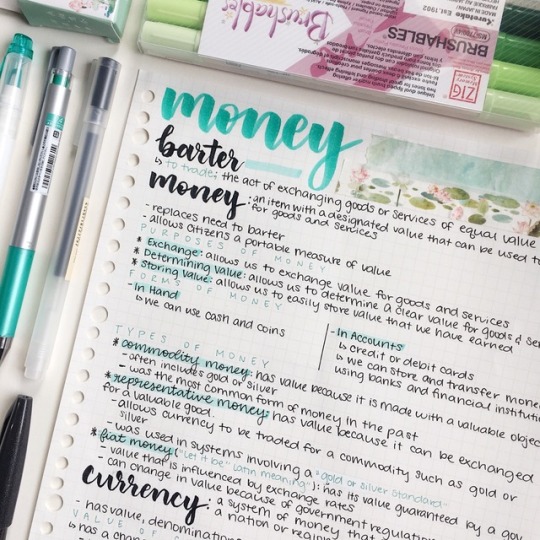 Kuretake Est.1902
ZIG
BRUSHABLES
Brushables
money
barter
↳ to trade; the act of exchanging goods or services of equal value
money: an item with a designated value that can be used to
for goods and services
- replaces need to barter
- allows citizens a portable measure of value
PURPOSES OF MONEY
* Exchange: allows us to exchange value for goods and services
* Determining value: allows us to determine a clear value for goods & ser
* Storing value: allows us to easily store value that we have earned
FORMS OF MONEY
- In Hand
↳ we can use cash and coins
- In Accounts
↳ credit or debit cards
↳ we can store and transfer money
using banks and financial institution
TYPES OF MONEY
* commodity money: has value because it is made with a valuable objec
- often includes gold or silver
- was the most common form of money in the past
* representative money: has value because it can be exchanged
for a valuable good.
- allows currency to be traded for a commodity such as gold or
silver
- was used in systems involving a "gold or silver standard"
* fiat money ("Let it be" - Latin meaning): has its value guaranteed by a gov
- value that is influenced by exchange rates
- can change in value because of government regulation
currency: a system of money that
a nation or region
- has value, denomination
VALUE OF
↳ has a chan